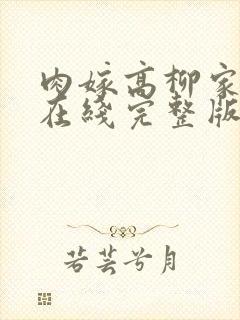 肉嫁高柳家
在线完整版
若芸兮月